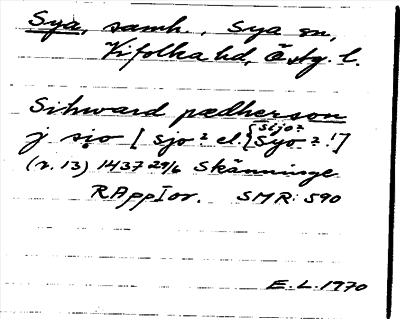 Sya, samh., Sya sn,
Vifolka hd, Östg. l.
Sihward pædherson
j sio [sjo? el. {Sijo? Syo? !]
(r. 13) 1437 29/6 Skänninge
RAppIor. SMR: 590
E.L. 1970